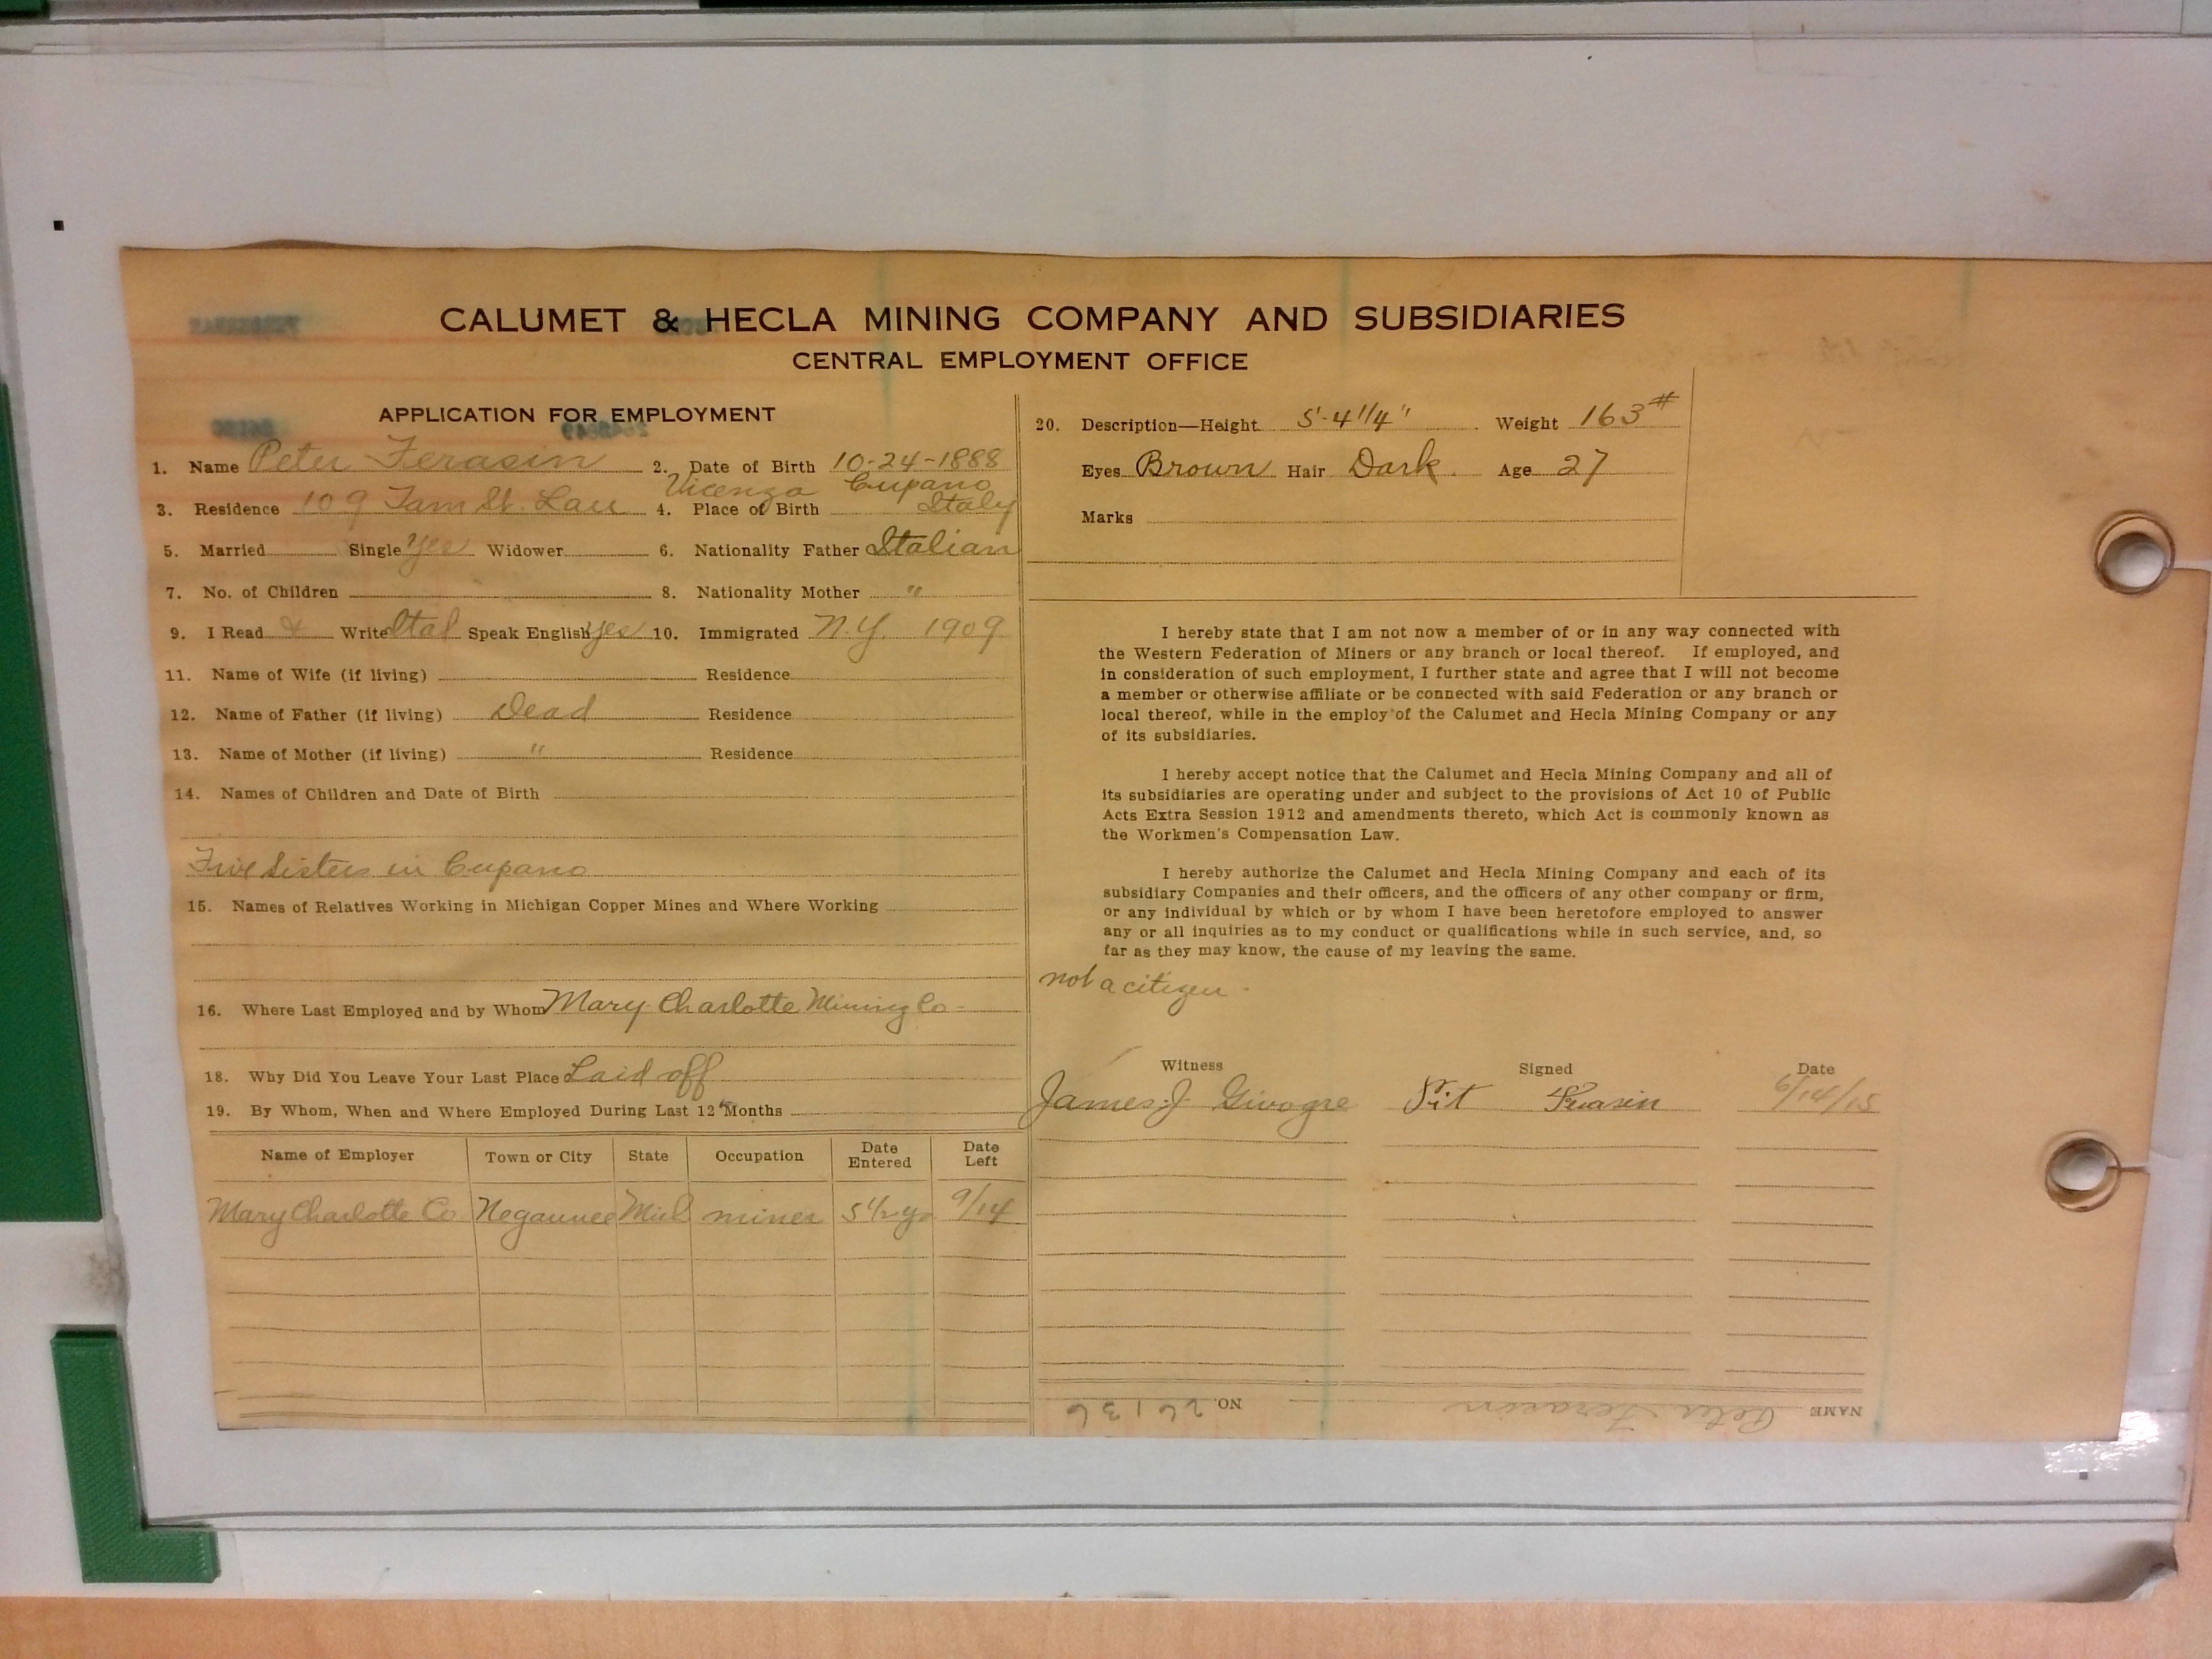 CALUMET & HECLA MINING COMPANY AND SUBSIDIARIES
CENTRAL EMPLOYMENT OFFICE
APPLICATION FOR EMPLOYMENT
1. Name Peter Ferasin 2. Date of Birth 10-24-1888
Vicenza Cupano
3. Residence 109 Tam St. Lau 4. Place of Birth Italy
5. Married Single Yes Widower 6. Nationality Father Italian
7. No. of Children 8. Nationality Mother "
9. I Read & Write Ital Speak English yes 10. Immigrated N.Y. 1909
11. Name of Wife (if living) Residence
12. Name of Father (if living) Dead Residence
13. Name of Mother (if living) " Residence
14. Names of Children and Date of Birth
Five Sisters in Cupano
15. Names of Relatives Working in Michigan Copper Mines and Where Working
16. Where Last Employed and by Whom Mary Charlotte Mining Co-
18. Why Did You Leave Your Last Place Laid off
19. By Whom, When and Where Employed During Last 12 Months
Name of Employer Town or City State Occupation Date Entered Date Left
Mary Charlotte Co. Negaunee Mich miner 5 1/2 yr 9/14
20. Description—Height 5'-4 1/4" Weight 163#
Eyes Brown Hair Dark Age 27
Marks
I hereby state that I am not now a member of or in any way connected with
the Western Federation of Miners or any branch or local thereof. If employed, and
in consideration of such employment, I further state and agree that I will not become
a member or otherwise affiliate or be connected with said Federation or any branch or
local thereof, while in the employ of the Calumet and Hecla Mining Company or any
of its subsidiaries.
I hereby accept notice that the Calumet and Hecla Mining Company and all of
its subsidiaries are operating under and subject to the provisions of Act 10 of Public
Acts Extra Session 1912 and amendments thereto, which Act is commonly known as
the Workmen's Compensation Law.
I hereby authorize the Calumet and Hecla Mining Company and each of its
subsidiary Companies and their officers, and the officers of any other company or firm,
or any individual by which or by whom I have been heretofore employed to answer
any or all inquiries as to my conduct or qualifications while in such service, and, so
far as they may know, the cause of my leaving the same.
not a citizen -
Witness Signed Date
James J. Givogre Pit Ferasin 6/14/15
NAME Peter Ferasin NO. 26136